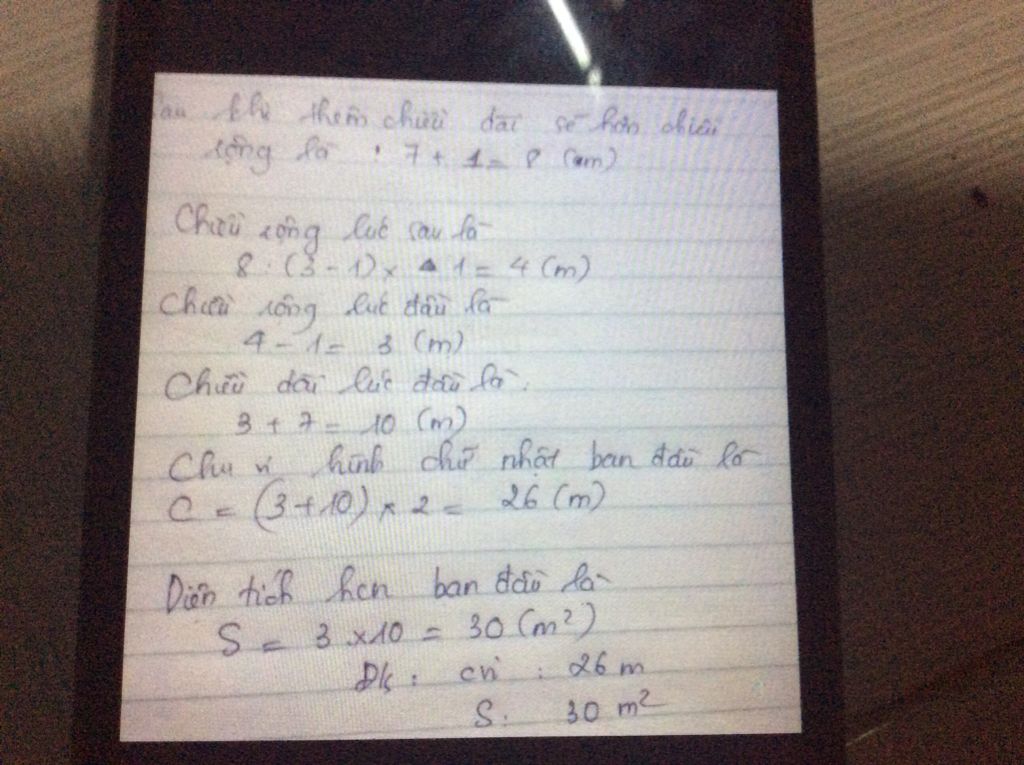 au khi thêm chiều dài sẽ hơn chiều
rộng là : 7 + 1 = 8 (m)
Chiều rộng lúc sau là
8 : (3 - 1) x 1 = 4 (m)
Chiều rộng lúc đầu là
4 - 1 = 3 (m)
Chiều dài lúc đầu là :
3 + 7 = 10 (m)
Chu vi hình chữ nhật ban đầu là
C = (3 + 10) x 2 = 26 (m)
Diện tích hcn ban đầu là
S = 3 x 10 = 30 (m²)
Đ/s : cvi : 26 m
S : 30 m²